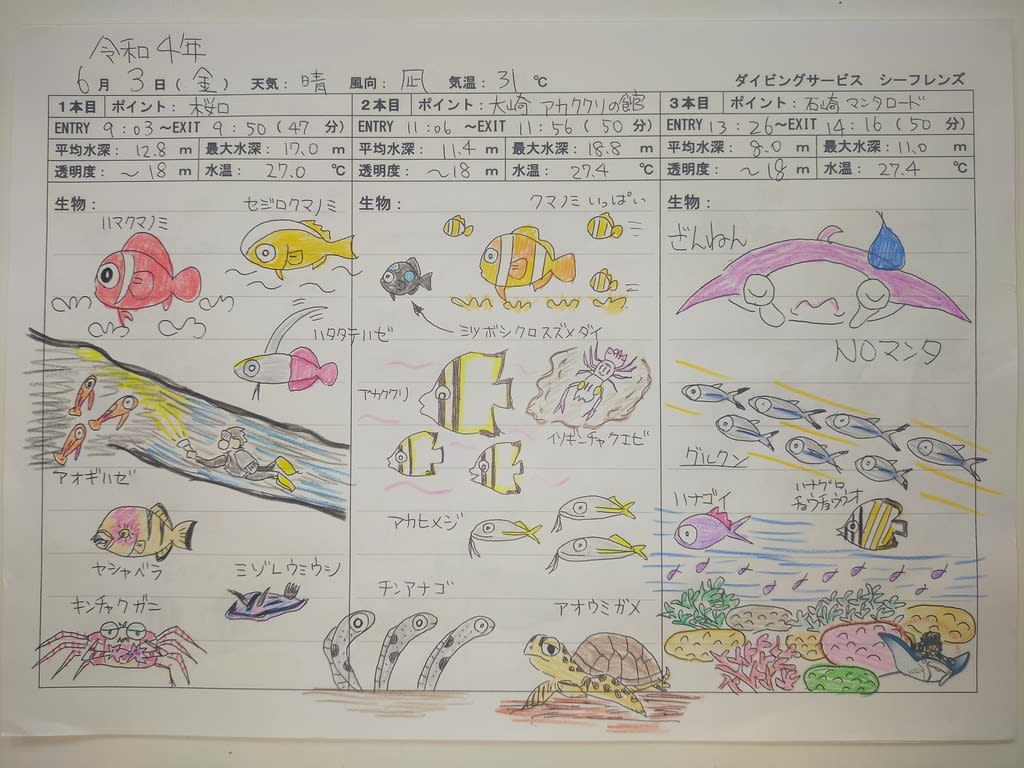 令和4年
6月 3日(金) 天気: 晴 風向: 凪 気温: 31 ℃ ダイビングサービス シーフレンズ
1本目 ポイント: 桜口
ENTRY 9:03~EXIT 9:50(47 分)
平均水深: 12.8 m 最大水深: 17.0 m
透明度: ~18 m 水温: 27.0 ℃
生物:
ハマクマノミ
セジロクマノミ
ハタタテハゼ
アオギハゼ
ヤシャベラ
ミゾレウミウシ
キンチャクガニ
2本目 ポイント: 大崎 アカククリの館
ENTRY 11:06 ~EXIT 11:56(50 分)
平均水深: 11.4 m 最大水深: 18.8 m
透明度: ~18 m 水温: 27.4 ℃
生物:
クマノミ いっぱい
ミツボシクロスズメダイ
アカククリ
イソギーチャクエビ
アカヒメジ
チンアナゴ
アオウミガメ
3本目 ポイント: 石崎 マンタロード
ENTRY 13:26~EXIT 14:16(50 分)
平均水深: 8.0 m 最大水深: 11.0 m
透明度: ~18 m 水温: 27.4 ℃
生物:
ざんねん
NOマンタ
グルクン
ハナゴイ
ハナグロ
チョウチョウウオ